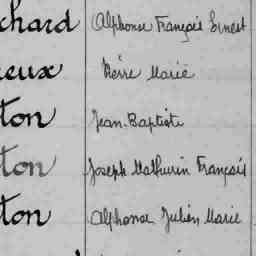 chard Alphonse François Ernest
reux Pierre Marie
ton Jean-Baptiste
ton Joseph Mathurin François
ton Alphonse Julien Marie